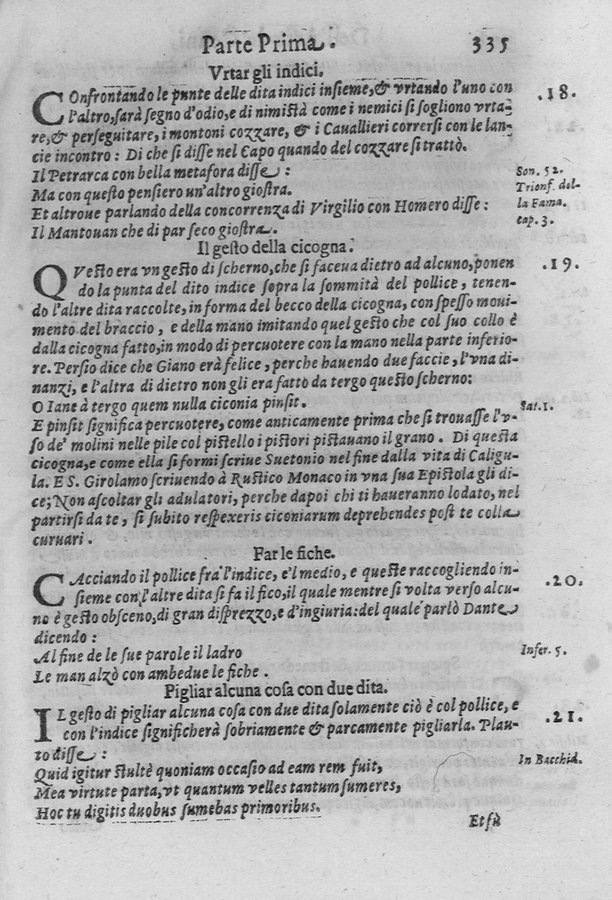 Parte Prima. 335
Vrtar gli indici.
COnfrontando le punte delle dita indici insieme,& vrtando l'uno con .18.
l'altro,sarà segno d'odio,e di nimistà come i nemici si sogliono vrta-
re,& perseguitare, i montoni cozzare, & i Cauallieri corrersi con le lan-
cie incontro : Di che si disse nel Capo quando del cozzare si trattò.
Il Petrarca con bella metafora disse : Son. 52.
Ma con questo pensiero un'altro giostra. Trionf. del-
Et altroue parlando della concorrenza di Virgilio con Homero disse : la Fama.
Il Mantouan che di par seco giostra. cap. 3.
Il gesto della cicogna.
QVesto era vn gesto di scherno,che si faceua dietro ad alcuno,ponen .19.
do la punta del dito indice sopra la sommità del pollice, tenen-
do l'altre dita raccolte, in forma del becco della cicogna, con spesso moui-
mento del braccio , e della mano imitando quel gesto che col suo collo è
dalla cicogna fatto,in modo di percuotere con la mano nella parte inferio-
re. Persio dice che Giano erà felice, perche hauendo due faccie, l'vna di-
nanzi, e l'altra di dietro non gli era fatto da tergo questo scherno:
O Iane à tergo quem nulla ciconia pinsit. Sat.1.
E pinsit significa percuotere, come anticamente prima che si trouasse l'v-
so de' molini nelle pile col pistello i pistori pistauano il grano . Di questa
cicogna,e come ella si formi scriue Suetonio nel fine dalla vita di Caligu-
la. E S. Girolamo scriuendo à Rustico Monaco in vna sua Epistola gli di-
ce; Non ascoltar gli adulatori, perche dapoi chi ti haueranno lodato, nel
partirsi da te , si subito respexeris ciconiarum deprehendes post te colla
curuari .
Far le fiche.
CAcciando il pollice fra l'indice, e'l medio, e queste raccogliendo in- .20.
sieme con l'altre dita si fa il fico,il quale mentre si volta verso alcu-
no è gesto obsceno, di gran disprezzo, e d'ingiuria: del quale parlò Dante
dicendo :
Al fine de le sue parole il ladro Infer. 5.
Le man alzò con ambedue le fiche .
Pigliar alcuna cosa con due dita.
IL gesto di pigliar alcuna cosa con due dita solamente ciò è col pollice, e .21.
con l'indice significherà sobriamente & parcamente pigliarla. Plau-
to disse : In Bacchid.
Quid igitur stultè quoniam occasio ad eam rem fuit,
Mea virtute parta, vt quantum velles tantum sumeres,
Hoc tu digitis duobus sumebas primoribus.
Et sù